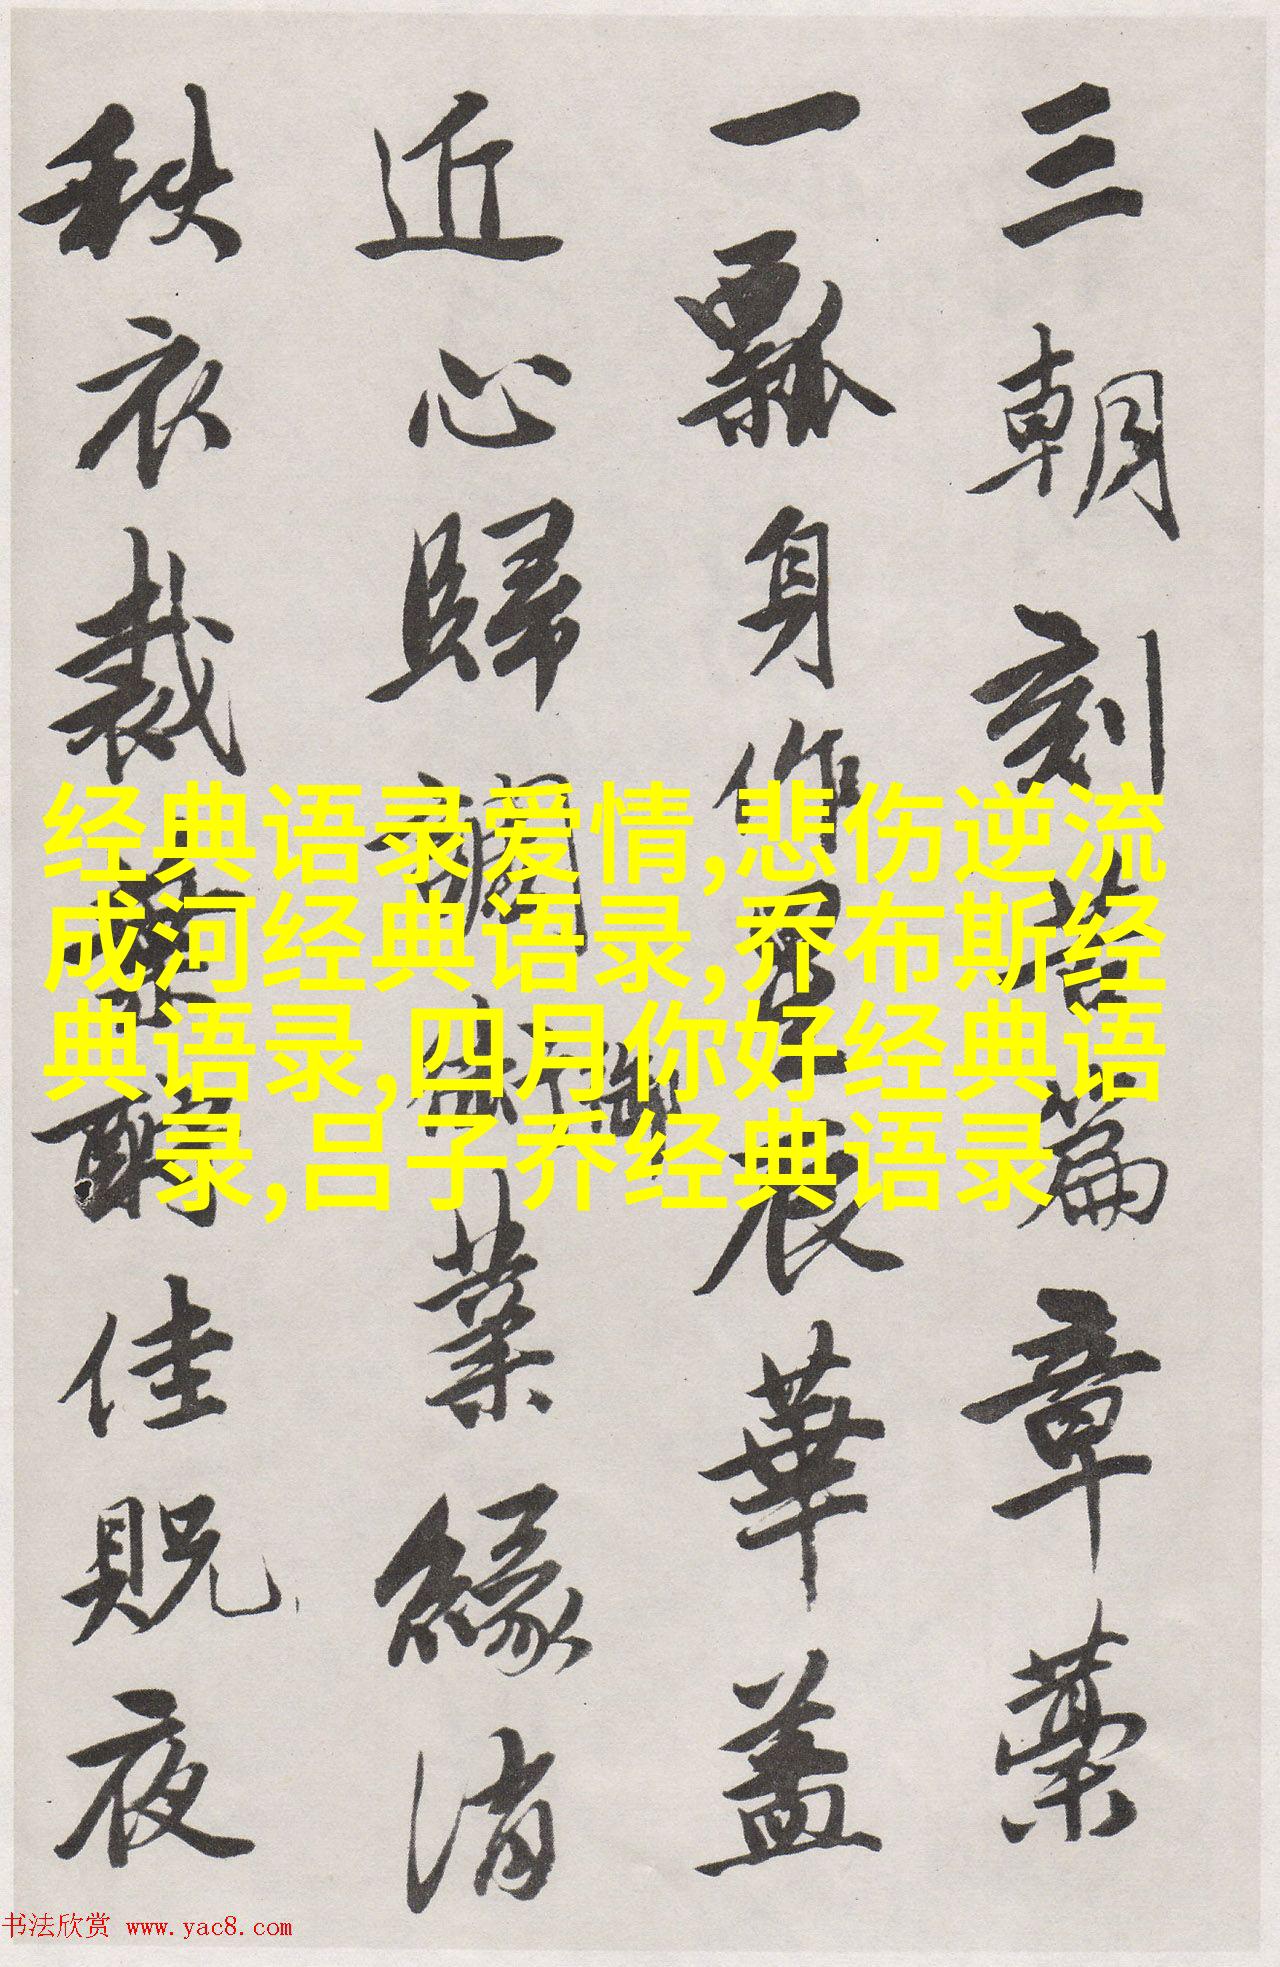 三朝刻苦篇章藁
一瓢身作衰華蓋
近心歸調業緣消
秩衣裁酬佳貺夜
经典语录爱情,悲伤逆流
成河经典语录,乔布斯经
典语录,四月你好经典语
录,吕子乔经典语录
书法欣赏 www.yac8.com